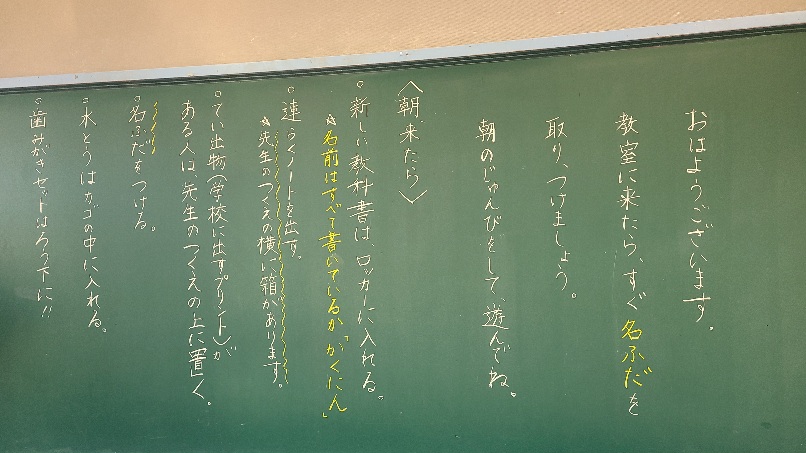 おはようございます。
教室に来たら、すぐ名ふだを
取り、つけましょう。
朝のじゅんびをして、遊んでね。
〈朝、来たら〉
○新しい教科書は、ロッカーに入れる。
☆名前はすべて書いているか「かくにん」
○連らくノートを出す。
☆先生のつくえの横に、箱があります。
○てい出物(学校に出すプリント)が
ある人は、先生のつくえの上に置く。
○名ふだをつける。
○水とうはカゴの中に入れる。
○歯みがきセットはろう下に!!